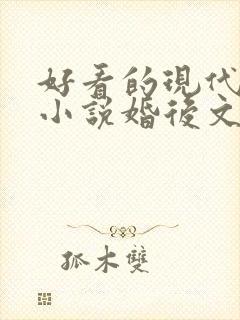 好看的現代
小說婚後文
孤木雙